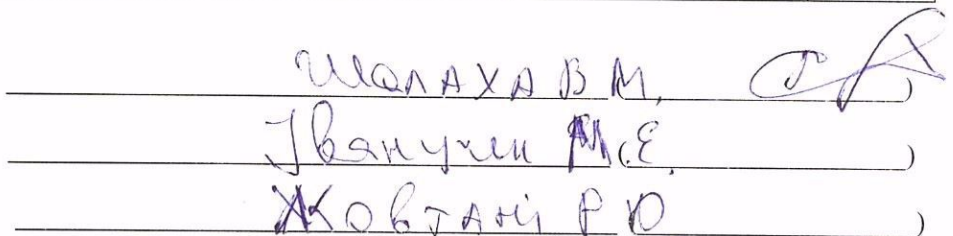 Шалаха В М.
Іванучик М.Е.
Жовтані Р Ю